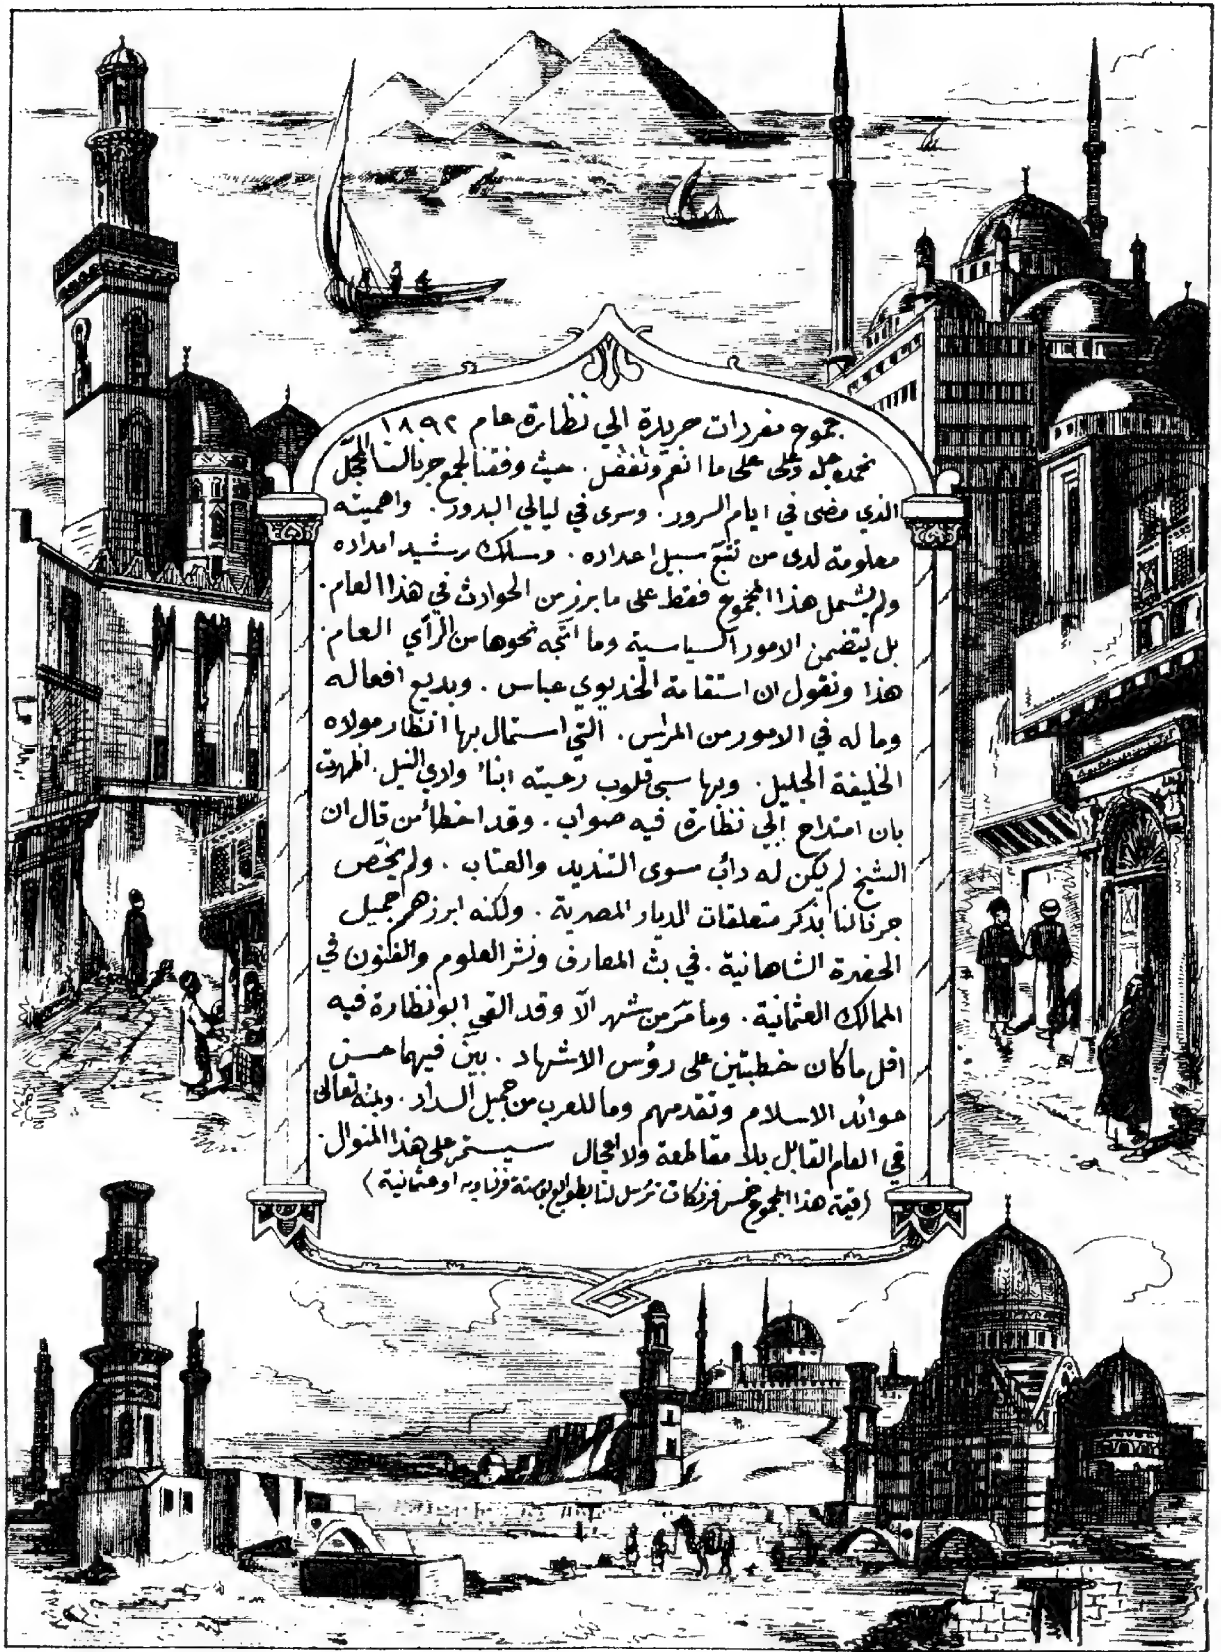 مجموع مفردات جريدة ابي نظارة عام ١٨٩٢
نحمده جل وعلى على ما انعم وتفضل . حيث وفقنا لجمع جرنالنا المبجل
الذي مضى في ايام السرور . وسرى في ليالي البدور . واهميته
معلومة لدى من تتبع سبيل اعداده . وسلك رشيد امداده
ولم يشمل هذا المجموع فقط على ما برز من الحوادث في هذا العام .
بل يتضمن الامور السياسية وما اتجه نحوها من الرآي العام
هذا ونقول ان استقامة الخديوي عباس . وبديع افعاله
وما له في الامور من المراس . التي استمال بها انظار مولاه
الخليفة الجليل . وبها سبى قلوب رعيته ابناء وادي النيل . اظهرت
بان امتداح ابي نظارة فيه صواب . وقد اخطأ من قال ان
الشيخ لم يكن له دأب سوى التنديد والعتاب . ولم يختص
جرنالنا بذكر متعلقات الديار المصرية . ولكنه ابرز هم جميل
الحضرة الشاهانية . في بث المعارف ونشر العلوم والفنون في
الممالك العثمانية . وما مر من شهر الآ وقد القي ابو نظارة فيه
اقل ما كان خطبتين على رؤس الاشهاد . بين فيهما حسن
عوائد الاسلام وتقدمهم وما للعرب من جميل السداد . وبمنه تعالى
في العام القابل بلا مقاطعة ولا اهمال سيستمر على هذا المنوال .
(قيمة هذا المجموع خمس فرنكات ترسل لنا بطوابع بوستة فرنساويه او عثمانية)